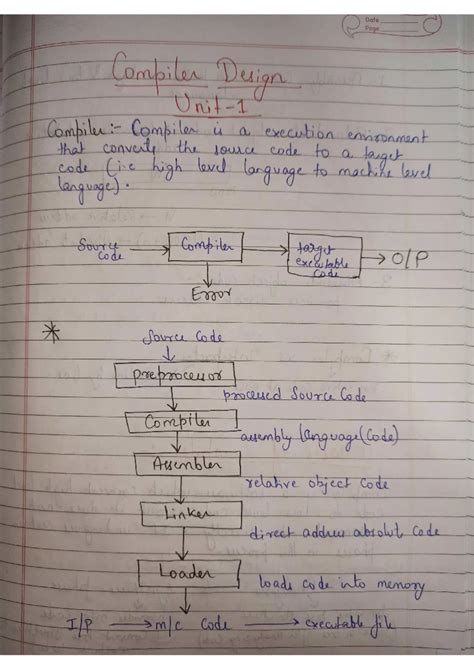 Date
Page
Compiler Design
Unit-1
Compiler:- Compiler is a execution environment
that converts the source code to a target
code (i.e high level language to machine level
language).
Source Code → Compiler → target executable code → O/P
Error
* Source Code
preprocessor
processed Source Code
Compiler
assembly language (Code)
Assembler
relative object code
Linker
direct address absolute code
Loader
loads code into memory
I/P → m/c code → executable file